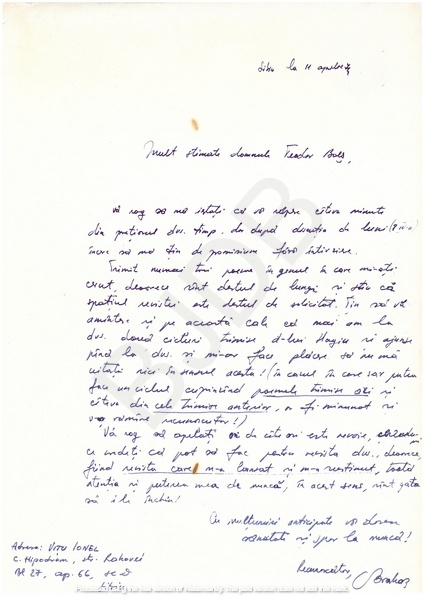 Sibiu la 11 aprilie
Mult stimate domnule Teodor Balș,
vă rog să mă iertați că vă răpesc câteva minute
din prețiosul dvs. timp. după de luni
încerc să mă țin de promisiune fără întârziere.
Trimit numai trei poeme în genul în care mi-ați
cerut, deoarece sînt destul de lungi și știu că
spațiul revistei este destul de solicitat. Țin să vă
amintesc și pe această cale că mai am la
dvs. două cicluri trimise d-lui Hagiu și ajunse
pînă la dvs. și mi-ar face plăcere să nu mă
uitați nici în sensul acesta! (în cazul în care s-ar putea
face un ciclu cuprinzînd poemele trimise azi și
câteva din cele trimise anterior, ar fi minunat și
v-aș rămîne recunoscător!)
Vă rog să apelați ori de câte ori este nevoie,
ce credeți că pot să fac pentru revista dvs., deoarece,
fiind revista care m-a lansat și m-a susținut, toată
atenția și puterea mea de muncă, în acest sens, sînt gata
să i le închin!
Cu mulțumiri anticipate vă doresc
sănătate și spor la muncă!
Recunoscător,
Adresa: VITU IONEL
C. Hipodrom, str. Rahovei
Bl 27, ap. 66, sc D
Sibiu
BJDB